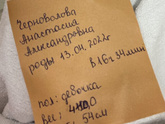 Черноволова
Анастасия
Александровна
роды 13.04.2022г
в 16ч 34мин
пол: девочка
вес: 4100
54см